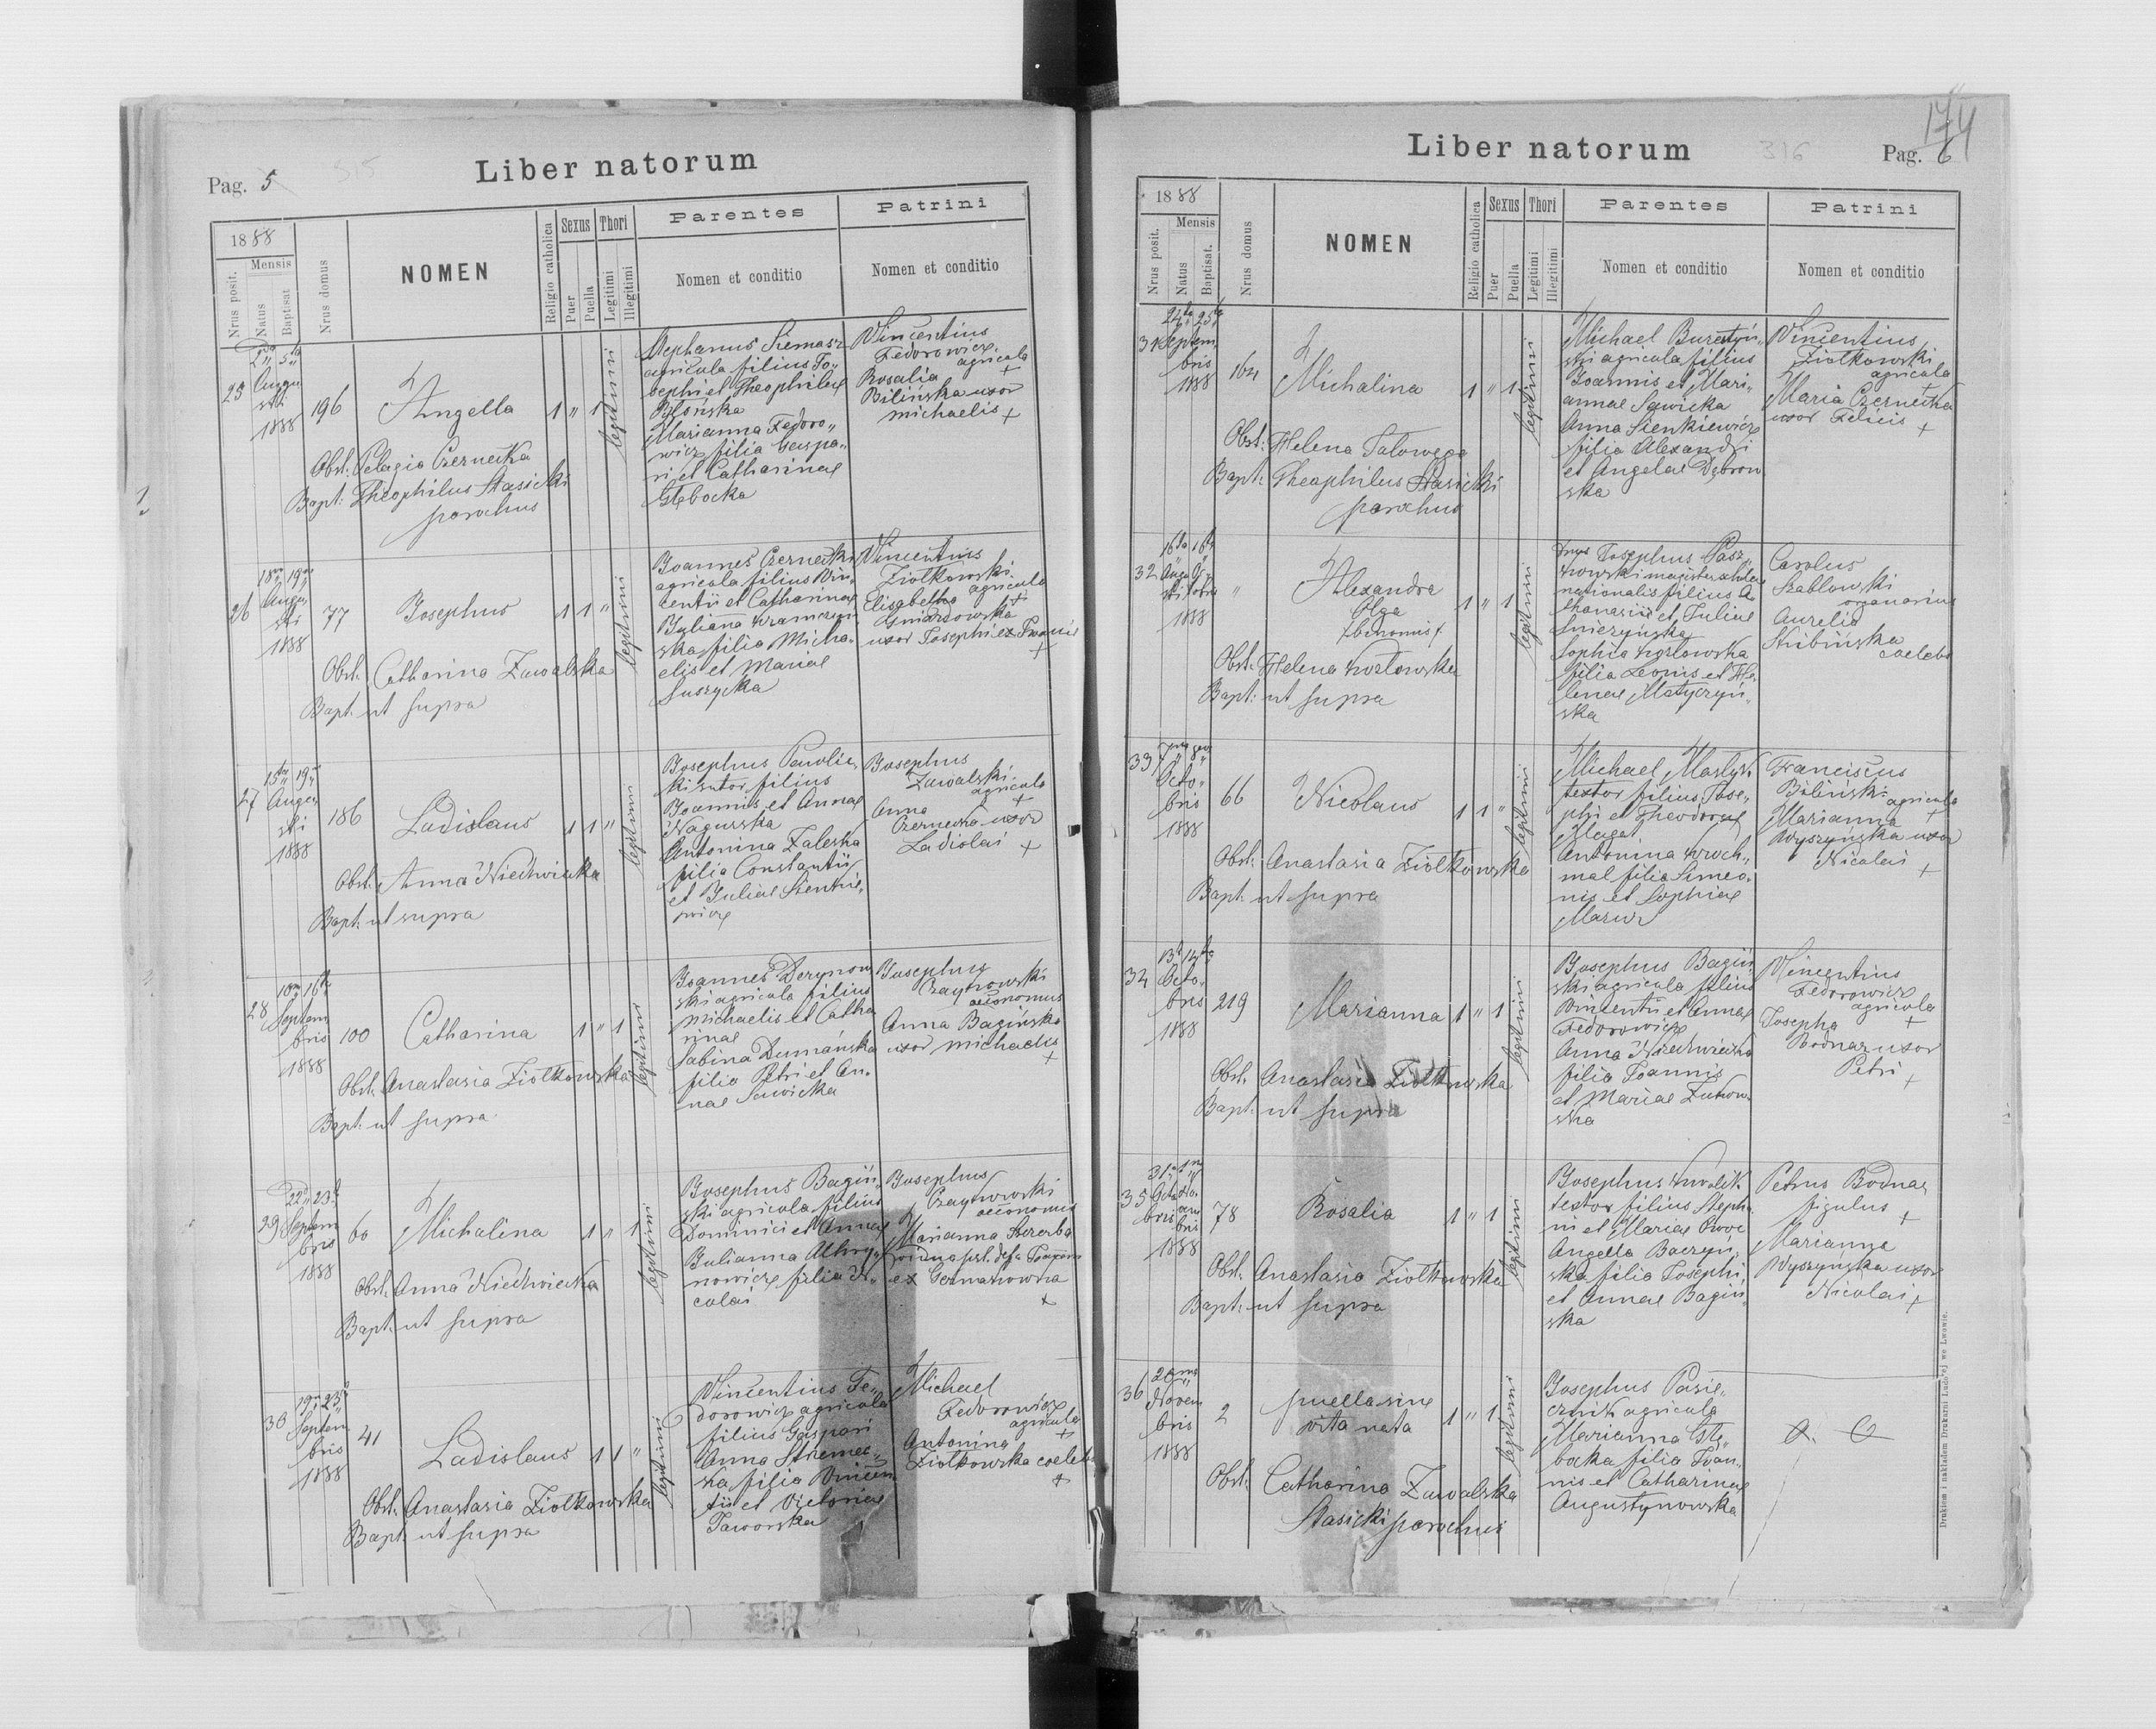 Pag. 5
315
Liber natorum
1888
Nrus posit.
Mensis
Natus
Baptisat
Nrus domus
NOMEN
Religio catholica
Sexus
Puer
Puella
Thori
Legitimi
Illegitimi
Parentes
Nomen et conditio
Patrini
Nomen et conditio
25
2 5
Augu
sti
1888
196
Angella
1 " 1
legitimi
Obst. Pelagia Czernecka
Bapt. Theophilus Stasicki
parochus
Stephanus Siemasz
agricola filius Jo„
sephi et Theophilae
Marianna Fedoro„
wicz filia Gaspa„
ri et Catharinae
Głębocka
Vincentius
Fedorowicz
agricola
+
Rosalia
Bilińska uxor
Michaelis +
26
18 19
Augu
sti
1888
77
Josephus
1 1 "
legitimi
Obst. Catharina Zawalska
Bapt. ut supra
Joannes Czernecki
agricola filius Vin„
centii et Catharinae
Juliana
ska filia Micha„
elis et Mariae
Suszycka
Vincentius
Ziołkowski
agricola
+
Elisabetha
uxor Josephi ex
+
27
15 19
Augu
sti
1888
186
Ladislaus
1 1 "
legitimi
Obst. Anna Niedwiecka
Bapt. ut supra
Josephus Pawlic„
ki sutor filius
Joannis et Annae
Nagurska
Antonina Zaleska
filia Constantii
et Juliae Sienkie„
wicz
Josephus
Zawalski
agricola
+
Anna
Czernecka uxor
Ladislai +
28
10 16
Septem
bris
1888
100
Catharina
1 " 1
legitimi
Obst. Anastasia Ziołkowska
Bapt. ut supra
Joannes Derynow
ski agricola filius
Michaelis et Catha
rinae
Sabina Dumańska
filia Petri et An„
nae Sawicka
Josephus
Czaykowski
oeconomus
Anna Bagińska
uxor Michaelis
+
29
22 23
Septem
bris
1888
60
Michalina
1 " 1
legitimi
Obst. Anna Niedwiecka
Bapt. ut supra
Josephus Bagiń„
ski agricola filius
Dominici et Annae
Julianna
nowicz filia Ni„
colai
Josephus
Czaykowski
oeconomus
Marianna Szczerba
+
30
19 23
Septem
bris
1888
41
Ladislaus
1 1 "
legitimi
Obst. Anastasia Ziołkowska
Bapt. ut supra
Vincentius Fe„
dorowicz agricola
filius Gaspari
Anna Stremec„
ka filia Vincen
tii et Victoriae
Jaworska
Michael
Fedorowicz
agricola
+
Antonina
Ziołkowska coelebs
+
174
Liber natorum
316
Pag. 6
1888
Nrus posit.
Mensis
Natus
Baptisat.
Nrus domus
NOMEN
Religio catholica
Sexus
Puer
Puella
Thori
Legitimi
Illegitimi
Parentes
Nomen et conditio
Patrini
Nomen et conditio
31
24 25
Septem
bris
1888
164
Michalina
1 " 1
legitimi
Obst. Helena
Bapt. Theophilus Stasicki
parochus
Michael Bursztyń„
ski agricola filius
Joannis et Mari„
annae Sawicka
Anna Sienkiewicz
filia Alexandri
et Angelae Dąbrow
ska
Vincentius
Ziołkowski
agricola
+
Maria Czernecka
uxor Felicis
+
32
16 16
1888
"
Alexandra
Olga
binomis
1 " 1
legitimi
Obst. Helena Kozłowska
Bapt. ut supra
Josephus
filius A
thanasii et Juliae
Sophia Kozłowska
filia Leonis et He„
lenae Matyczyń„
ska
Carolus
Szabłowski
Aurelia
Skibińska
coelebs
33
7
Octo„
bris
1888
66
Nicolaus
1 1 "
legitimi
Obst. Anastasia Ziołkowska
Bapt. ut supra
Michael Martyk
textor filius Jose„
phi et Theodorae
Antonina Kroch„
mal filia Simeo„
nis et Sophiae
Mazur
Franciscus
Biliński
agricola
+
Marianna
Wyszyńska uxor
Nicolai
+
34
13 14
Octo„
bris
1888
219
Marianna
1 " 1
legitimi
Obst. Anastasia Ziołkowska
Bapt. ut supra
Josephus Bagiń
ski agricola filius
Vincentii et Annae
Fedorowicz
Anna Niedwiecka
filia Joannis
et Mariae Żukow„
ska
Vincentius
Fedorowicz
agricola
+
Josepha
Bodnar uxor
Petri
+
35
31 1
1888
78
Rosalia
1 " 1
legitimi
Obst. Anastasia Ziołkowska
Bapt. ut supra
Josephus
textor filius Stepha
ni et Mariae
Angella Baczyń„
ska filia Josephi
et Annae Bagiń„
ska
Petrus Bodnar
figulus
+
Marianna
Wyszyńska uxor
Nicolai +
36
20
Novem
bris
1888
2
puella sine
vita nata
1 " 1
legitimi
Obst. Catharina Zawalska
Stasicki parochus
Josephus Pasie„
cznik agricola
Marianna Głę„
bocka filia Joan„
nis et Catharinae
Augustynowska
Drukiem i nakładem Drukarni Ludowej we Lwowie.